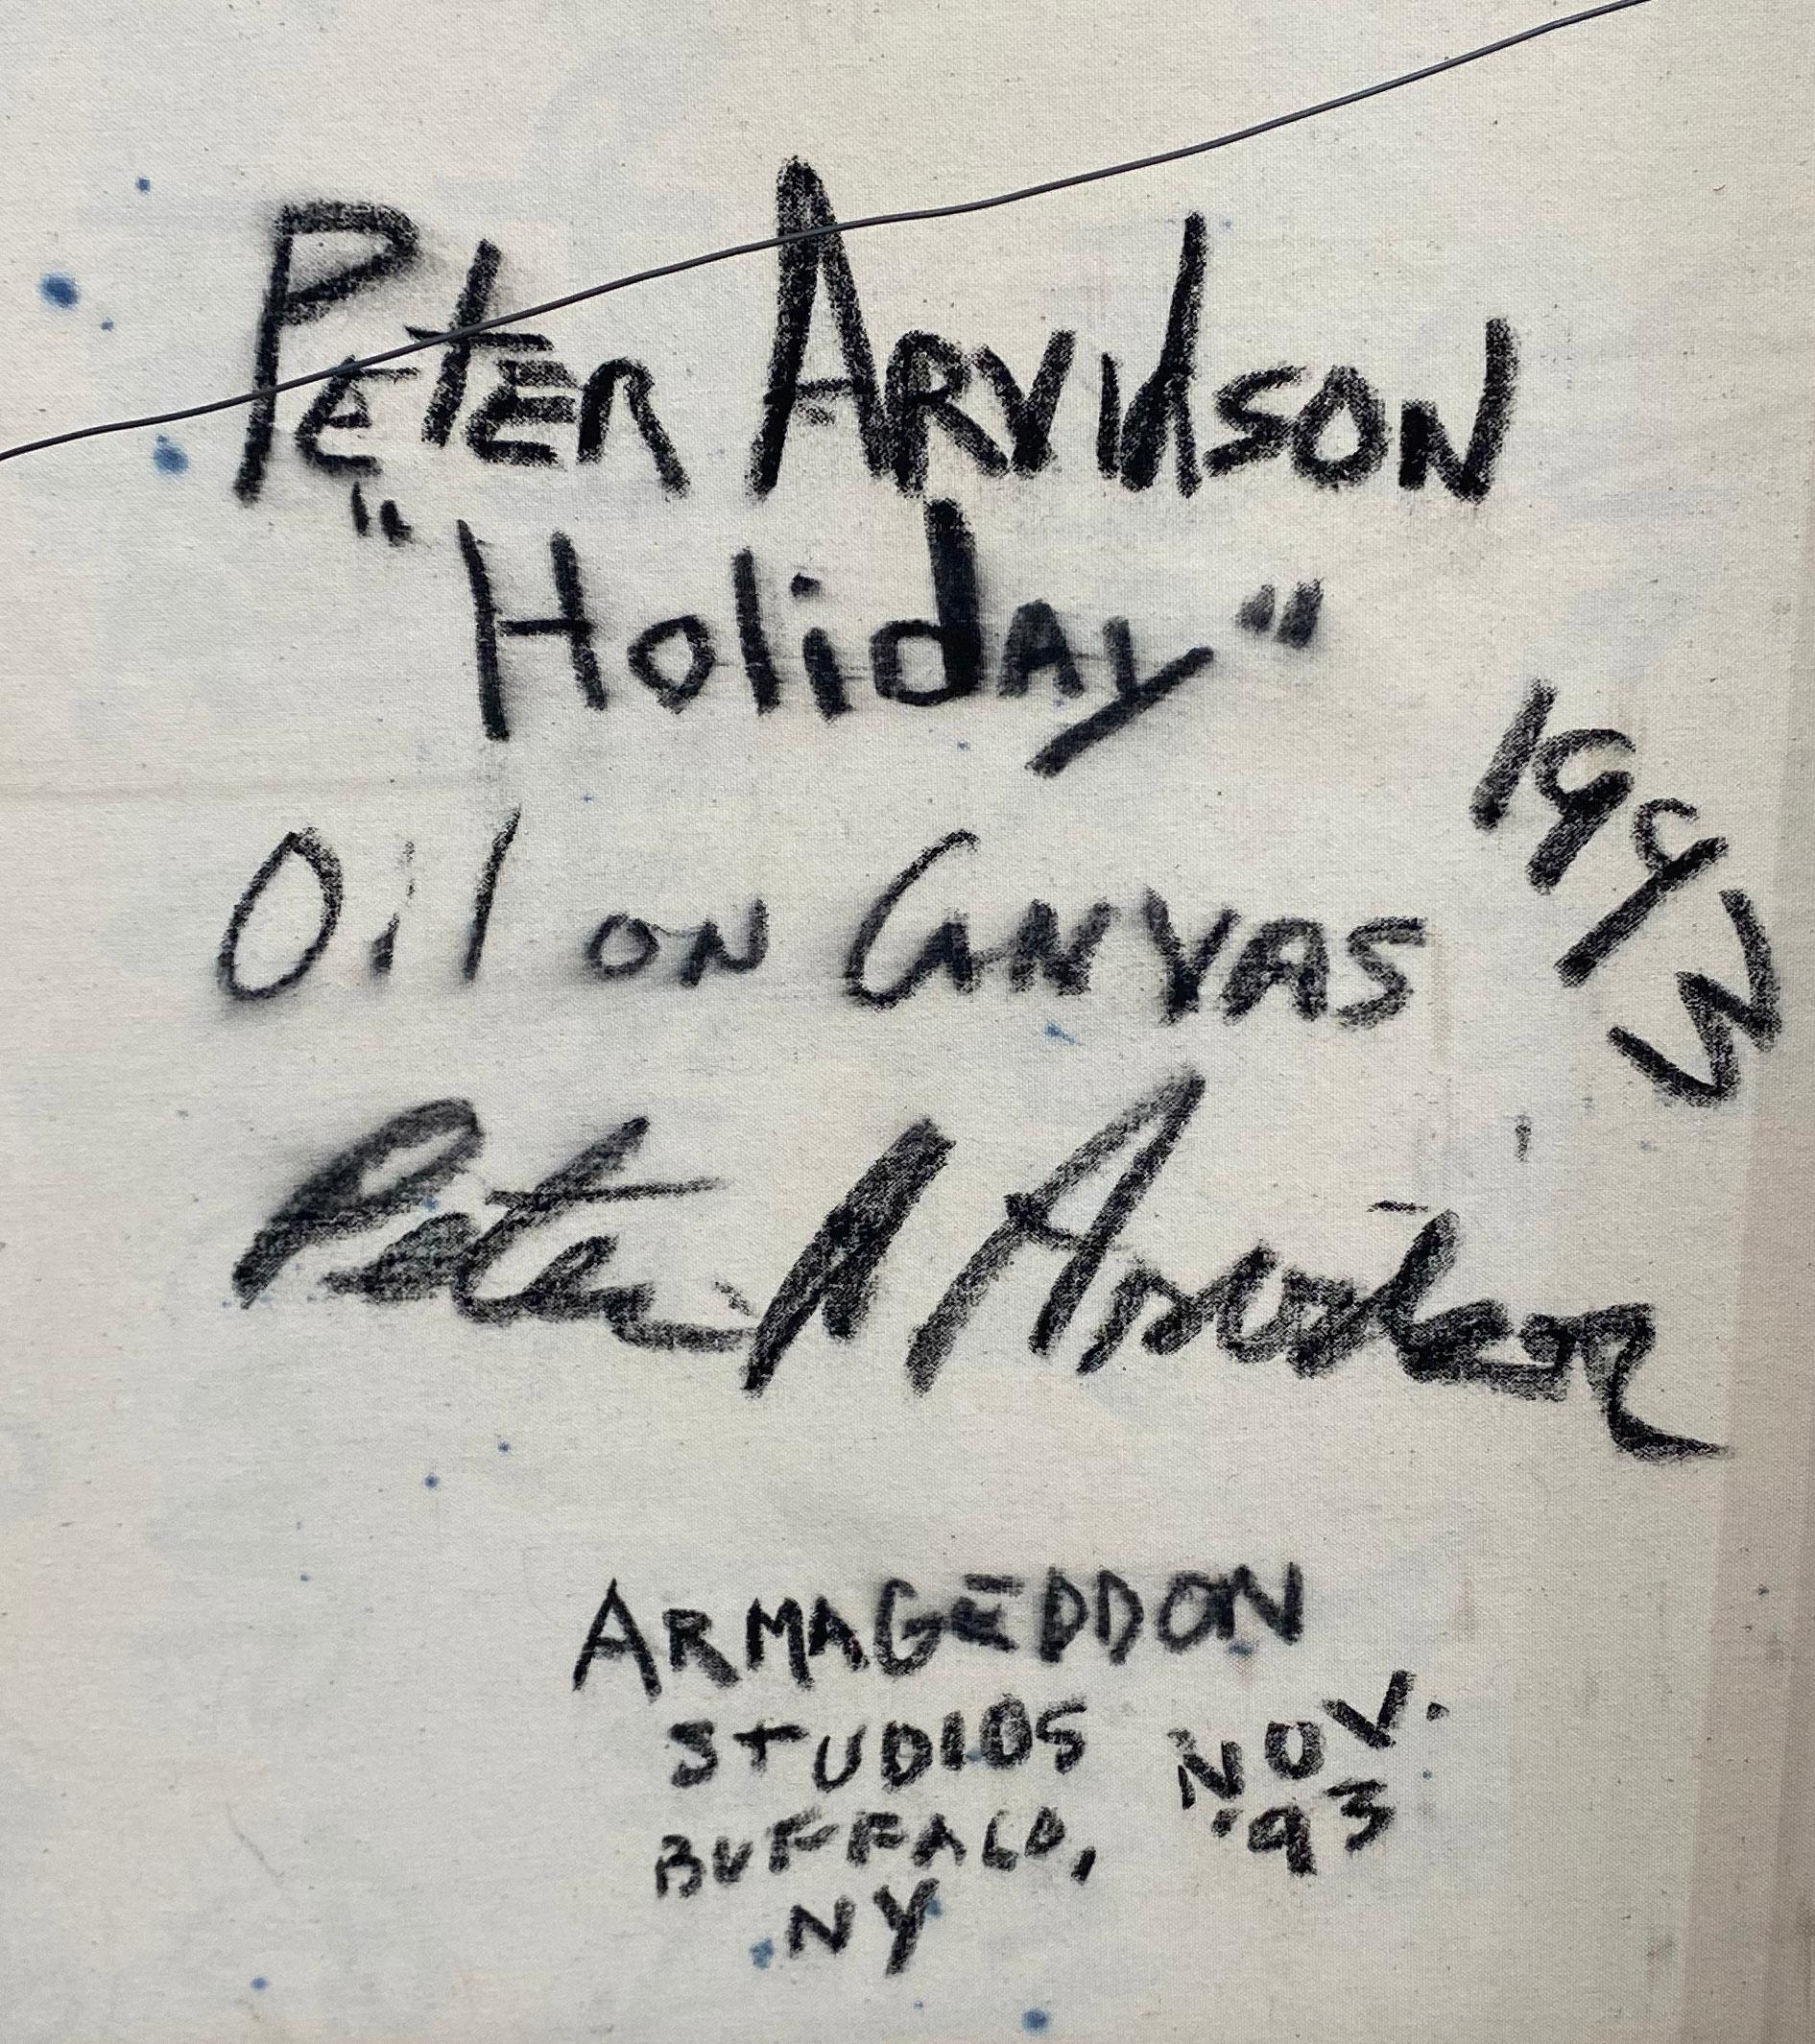 Peter Arvidson
"Holiday"
1993
Oil on Canvas
Peter A Arvidson
ARMAGEDDON
STUDIOS
NOV.
'93
BUFFALO,
NY